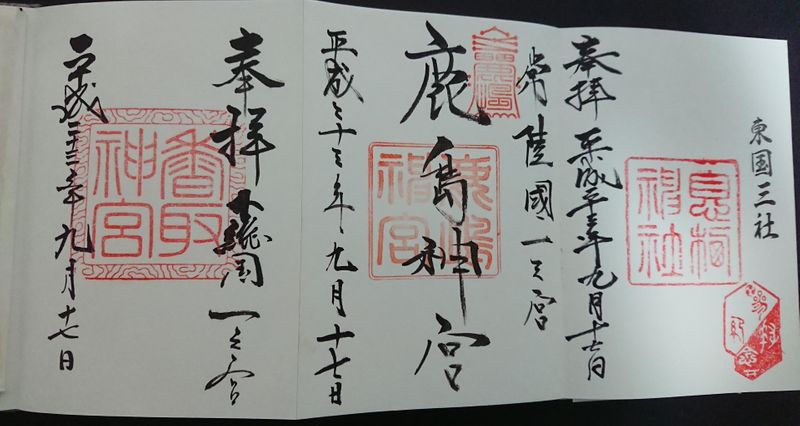 東国三社
息栖神社
参拝記念
奉拝 平成二十三年九月十七日
常陸國一之宮
鹿島神宮
鹿嶋神宮
平成二十三年九月十七日
奉拝 下総國一之宮
香取神宮
平成二十三年九月十七日